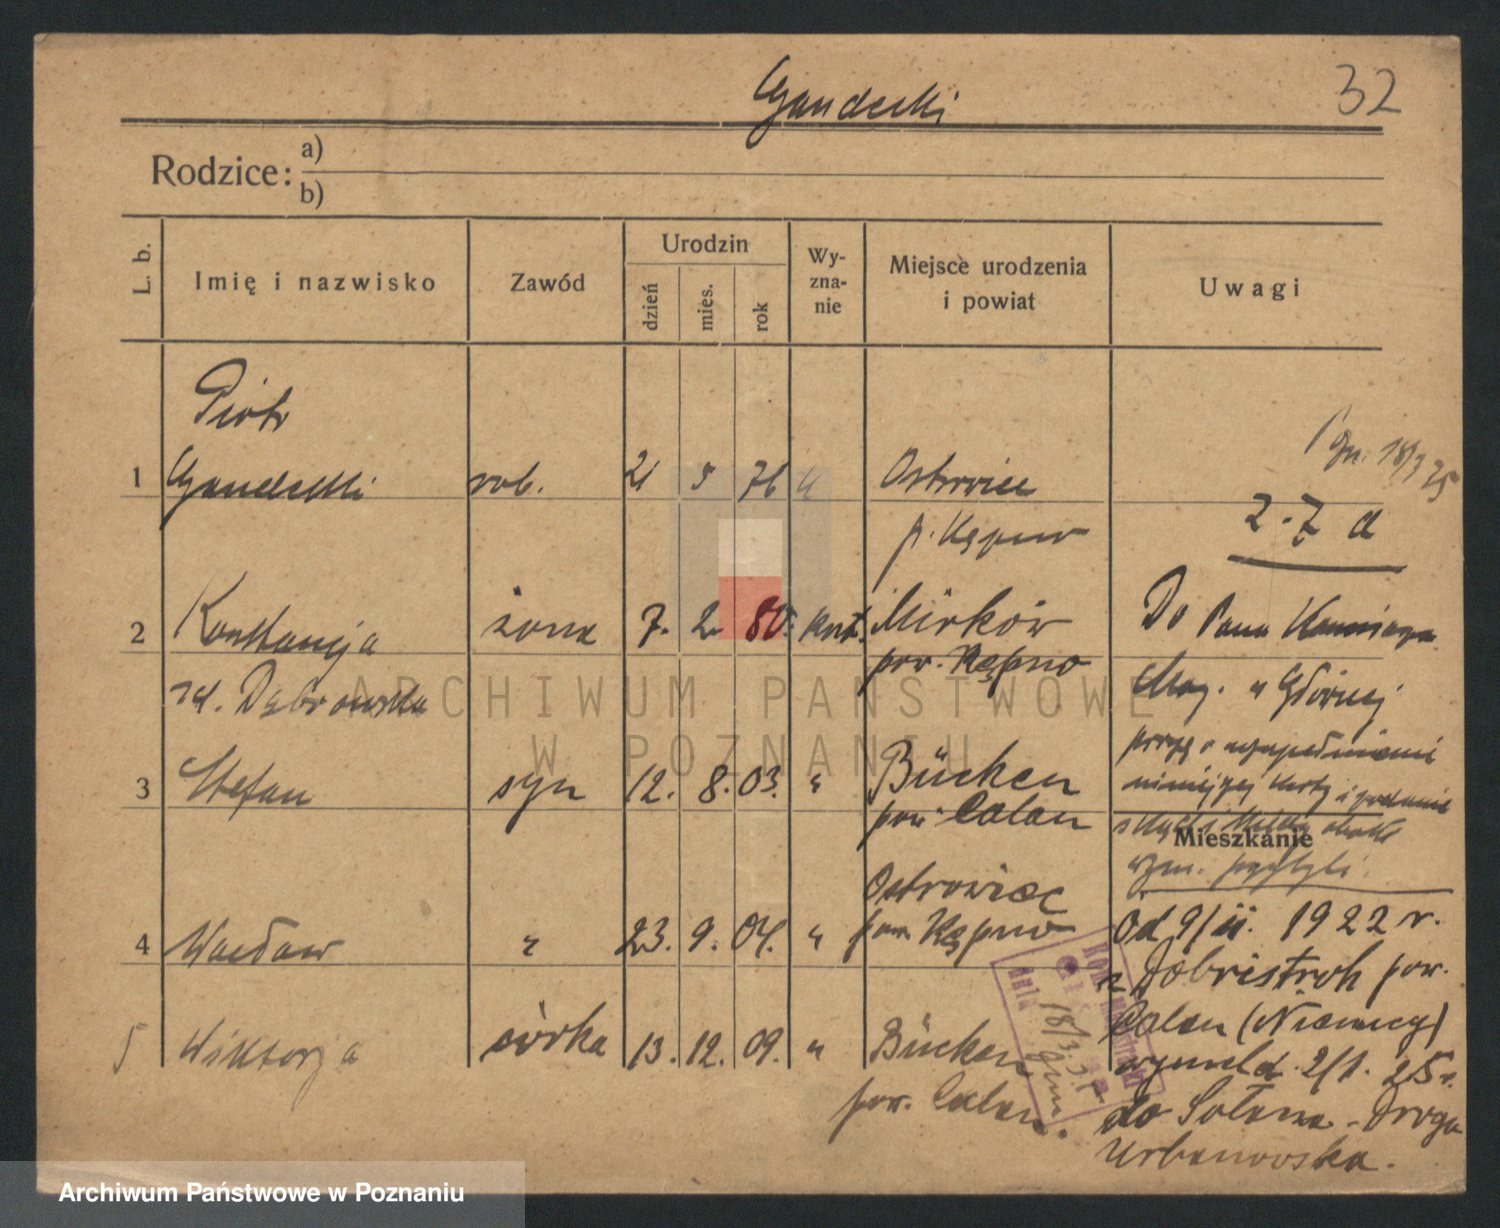 Gandecki
32
Rodzice:
a)
b)
L. b.
Imię i nazwisko
Zawód
Urodzin
dzień
mies.
rok
Wy-
zna-
nie
Miejsce urodzenia
i powiat
Uwagi
Piotr
1 Gandecki rob. 21 5 76 Ostrowiec
p. Kępno
18/3 25
2 - 7 a
2 Konstancja żona 7. 2. 80. kat. Mirków
pow. Kępno
zd. Dąbrowska
Do Pana
3 Stefan syn 12. 8. 03. " Bücken
pow. Calau
Mieszkanie
4 Wacław " 23. 9. 04. " Ostrowiec
pow. Kępno
5 Wiktorja córka 13. 12. 09. " Bücken
pow. Calau.
Od 9/II. 1922 r.
z Dobristroh pow.
Calau (Niemcy)
wymeld. 2/1. 25 r.
do Sołacza - Droga
Urbanowska.
dnia 18/3.
ARCHIWUM PAŃSTWOWE
W POZNANIU
Archiwum Państwowe w Poznaniu